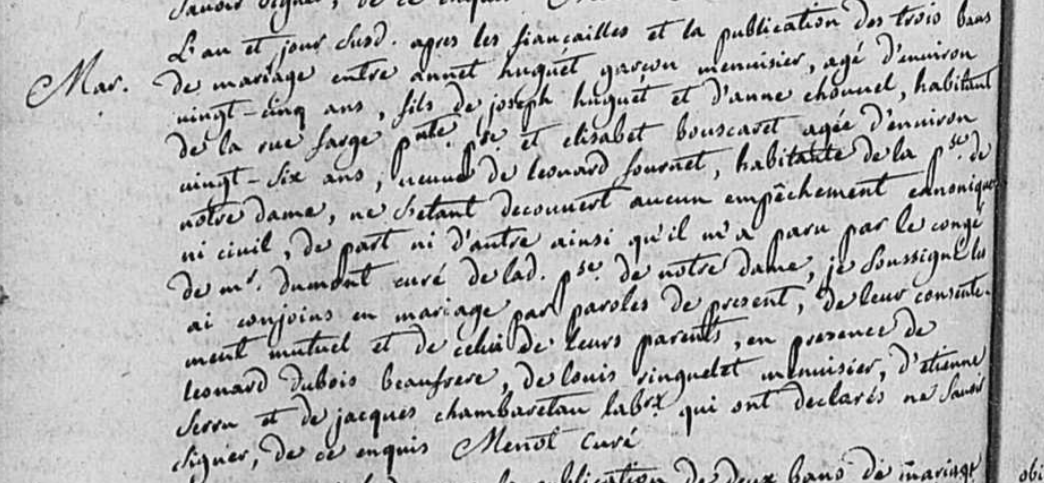 savoir signer, de ce enquis
L'an et jour susd. apres les fiancailles et la publication des trois bans
Mar. de mariage entre annet huguet garcon menuisier, agé d'environ
vingt-cinq ans, fils de joseph huguet et d'anne chouvel, habitant
de la rue farge pnte. pse. et elisabet bouscaret agée d'environ
vingt-six ans, veuve de leonard fournet, habitante de la pse. de
notre dame, ne s'etant decouvert aucun empêchement canonique
ni civil, de part ni d'autre ainsi qu'il m'a paru par le congé
de mr. dumont curé de lad. pse. de notre dame, je soussigné les
ai conjoins en mariage par paroles de present, de leur consente-
ment mutuel et de celui de leurs parents, en presence de
leonard dubois beaufrere, de louis ringuelet menuisier, d'etienne
serru et de jacques chambaretau labrx. qui ont declarés ne savoir
signer, de ce enquis Menot curé
publication de deux bans de mariage